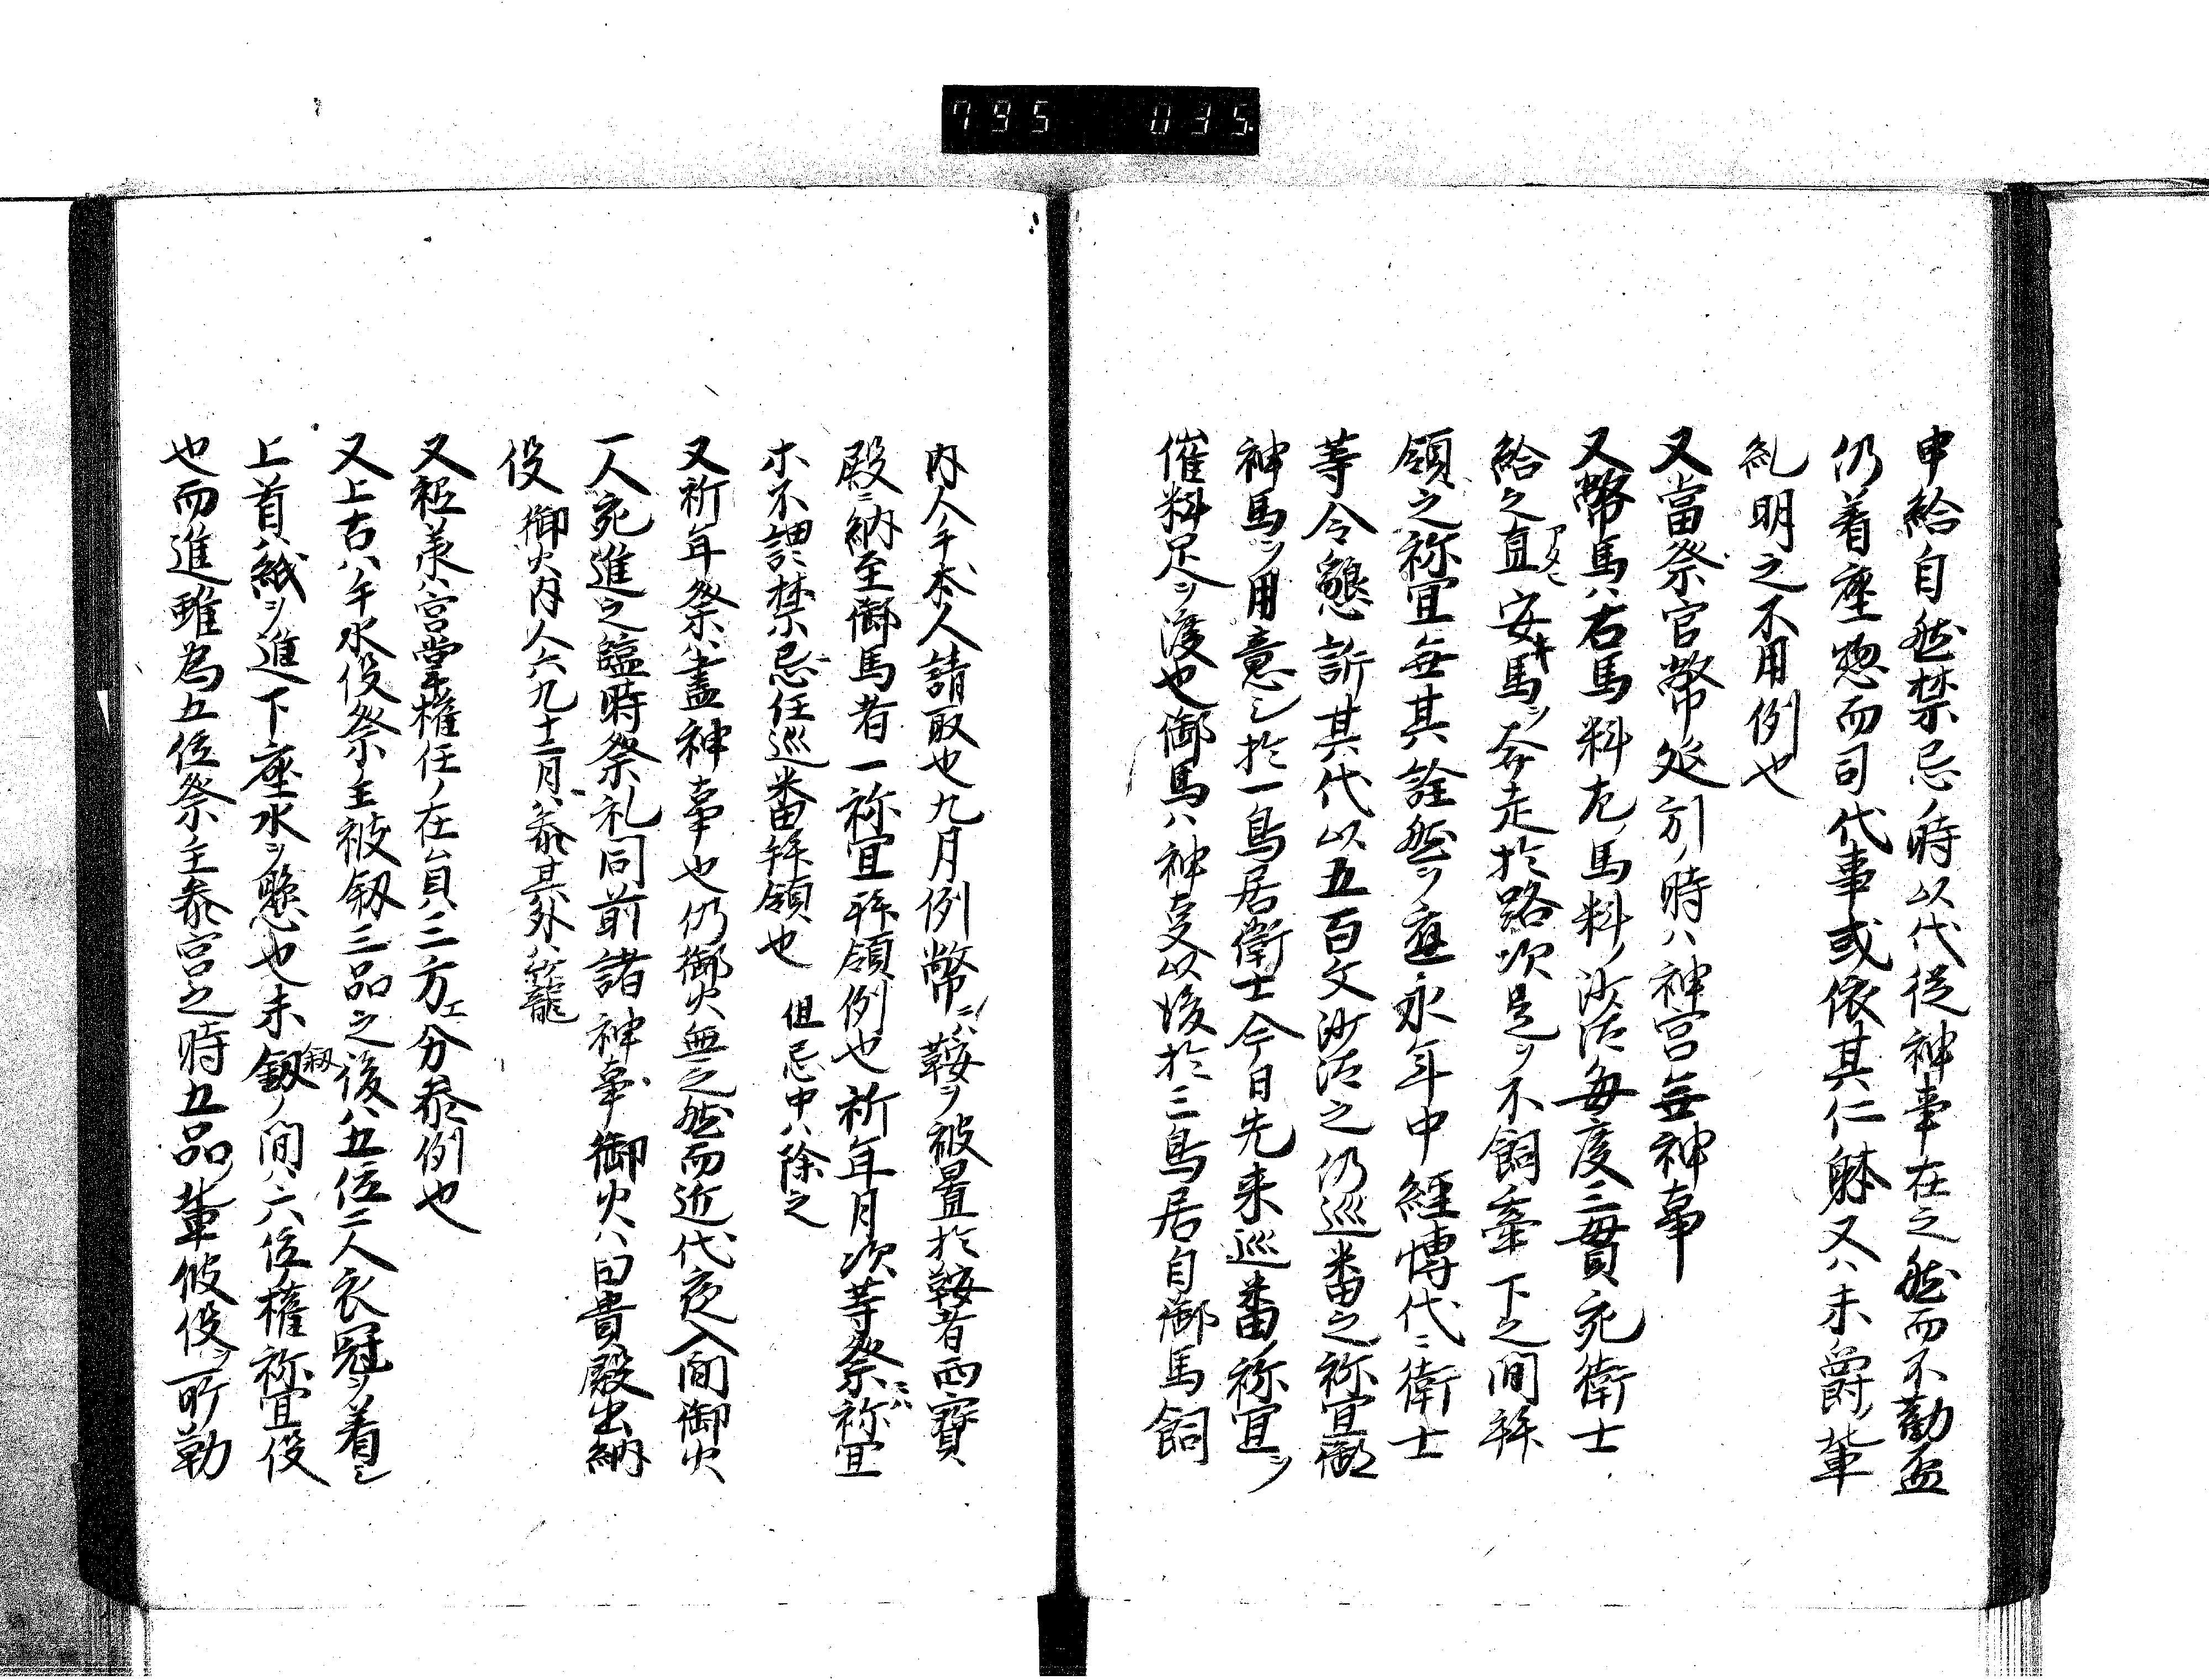 795 035
申給自然禁忌ノ時以代従神事在之然而不勸盃
仍着座惣而司代事或依其仁躰又ハ未爵ノ輩
糺明之不用例也
又當祭官幣延引ノ時ハ神宮無神事
又幣馬ハ右馬料左ノ馬料ノ沙汰毎度二貫宛衛士
給之直アタヒ安キ馬ヲ奔走於路次是ヲ不飼牽下之間拜
領之祢宜無其詮然ヲ應永年中經博代ニ衛士
等令懇訴其代以五百文沙汰之仍巡番之祢宜御
神馬ヲ用意シ於一鳥居衛士今日先来巡番ノ祢宜ヲ
催料足ヲ渡也御馬ハ神事以後於三鳥居自御馬飼
内人手本人請取也九月例幣ニハ鞍ヲ被置於鞍者西寶
殿ニ納至御馬者一祢宜拜領例也祈年月次等祭ニハ祢宜
木不謂禁忌任巡番拜領也 但忌中ハ除之
又祈年祭ハ晝神事也仍御火無之然而近代夜入間御火
一人宛進之臨時祭礼同前諸神事御火ハ由貴殿出納
役 御火内人六九十二月ハ参其外ハ籠
又祗承ハ宮掌權任ノ在員二方エ分参例也
又上古ハ手水役祭主被釼三品之後ハ五位二人衣冠ヲ着シ
上首ハ紙ヲ進下座水ヲ懸也未釼釼ノ間ハ六位權祢宜役
也而進雖為五位祭主参宮之時五品ノ輩彼役ヲ所勤